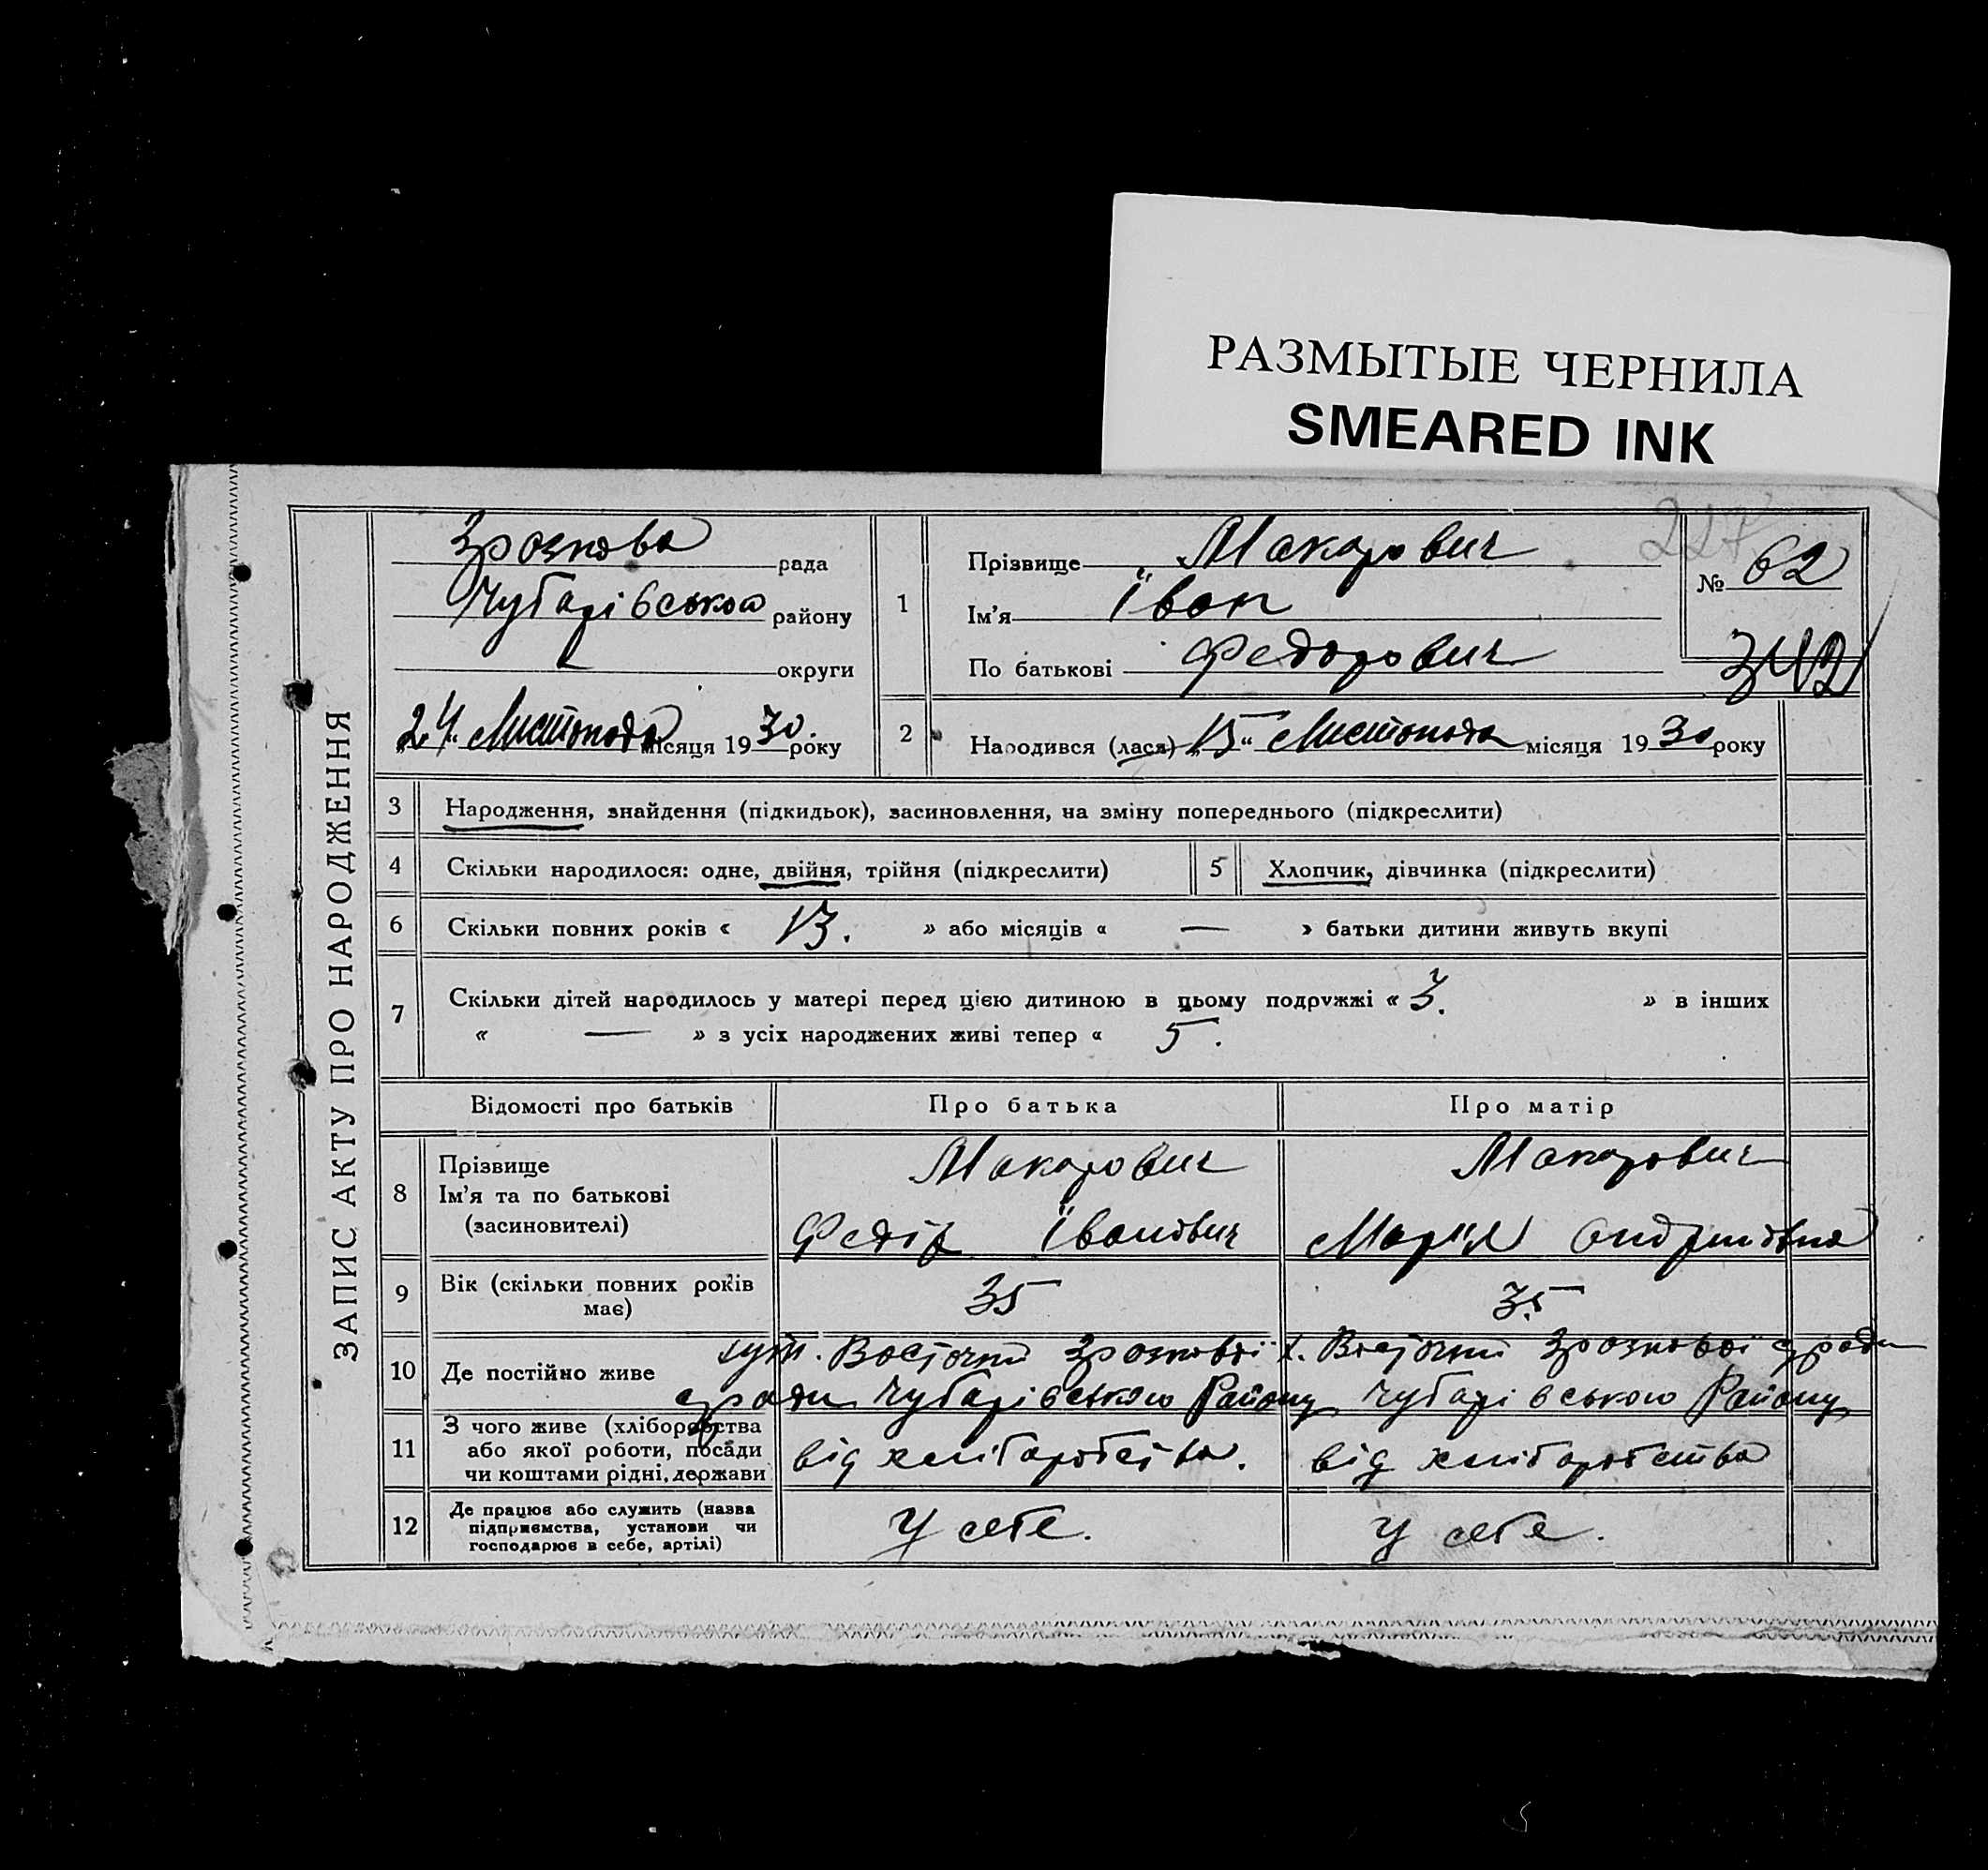 РАЗМЫТЫЕ ЧЕРНИЛА
SMEARED INK
227
ЗАПИС АКТУ ПРО НАРОДЖЕННЯ
Зрозкова рада
Чубарівського району
округи
„24“ Листопада місяця 1930. року
1
Прізвище Макарович
Ім'я Іван
По батькові Федорович
№ 62
342
2
Народився (лася) „15“ Листопада місяця 1930 року
3 Народження, знайдення (підкидьок), засиновлення, на зміну попереднього (підкреслити)
4 Скільки народилося: одне, двійня, трійня (підкреслити) 5 Хлопчик, дівчинка (підкреслити)
6 Скільки повних років « 13. » або місяців « — » батьки дитини живуть вкупі
7 Скільки дітей народилось у матері перед цією дитиною в цьому подружжі « 3. » в інших
« — » з усіх народжених живі тепер « 5.
Відомості про батьків Про батька Про матір
8
Прізвище Макарович Макарович
Ім'я та по батькові
(засиновителі) Федір Іванович Марія Андриївна
9 Вік (скільки повних років має) 35 35
10 Де постійно живе
хут. Восточний Зрозкової х. Восточний Зрозкової с/ради
с/ради Чубарівського Району Чубарівського Району
11 З чого живе (хліборобства
або якої роботи, посади
чи коштами рідні, держави
від хліборобства. від хліборобства
12 Де працює або служить (назва
підприємства, установи чи
господарює в себе, артілі)
У себе. У себе.